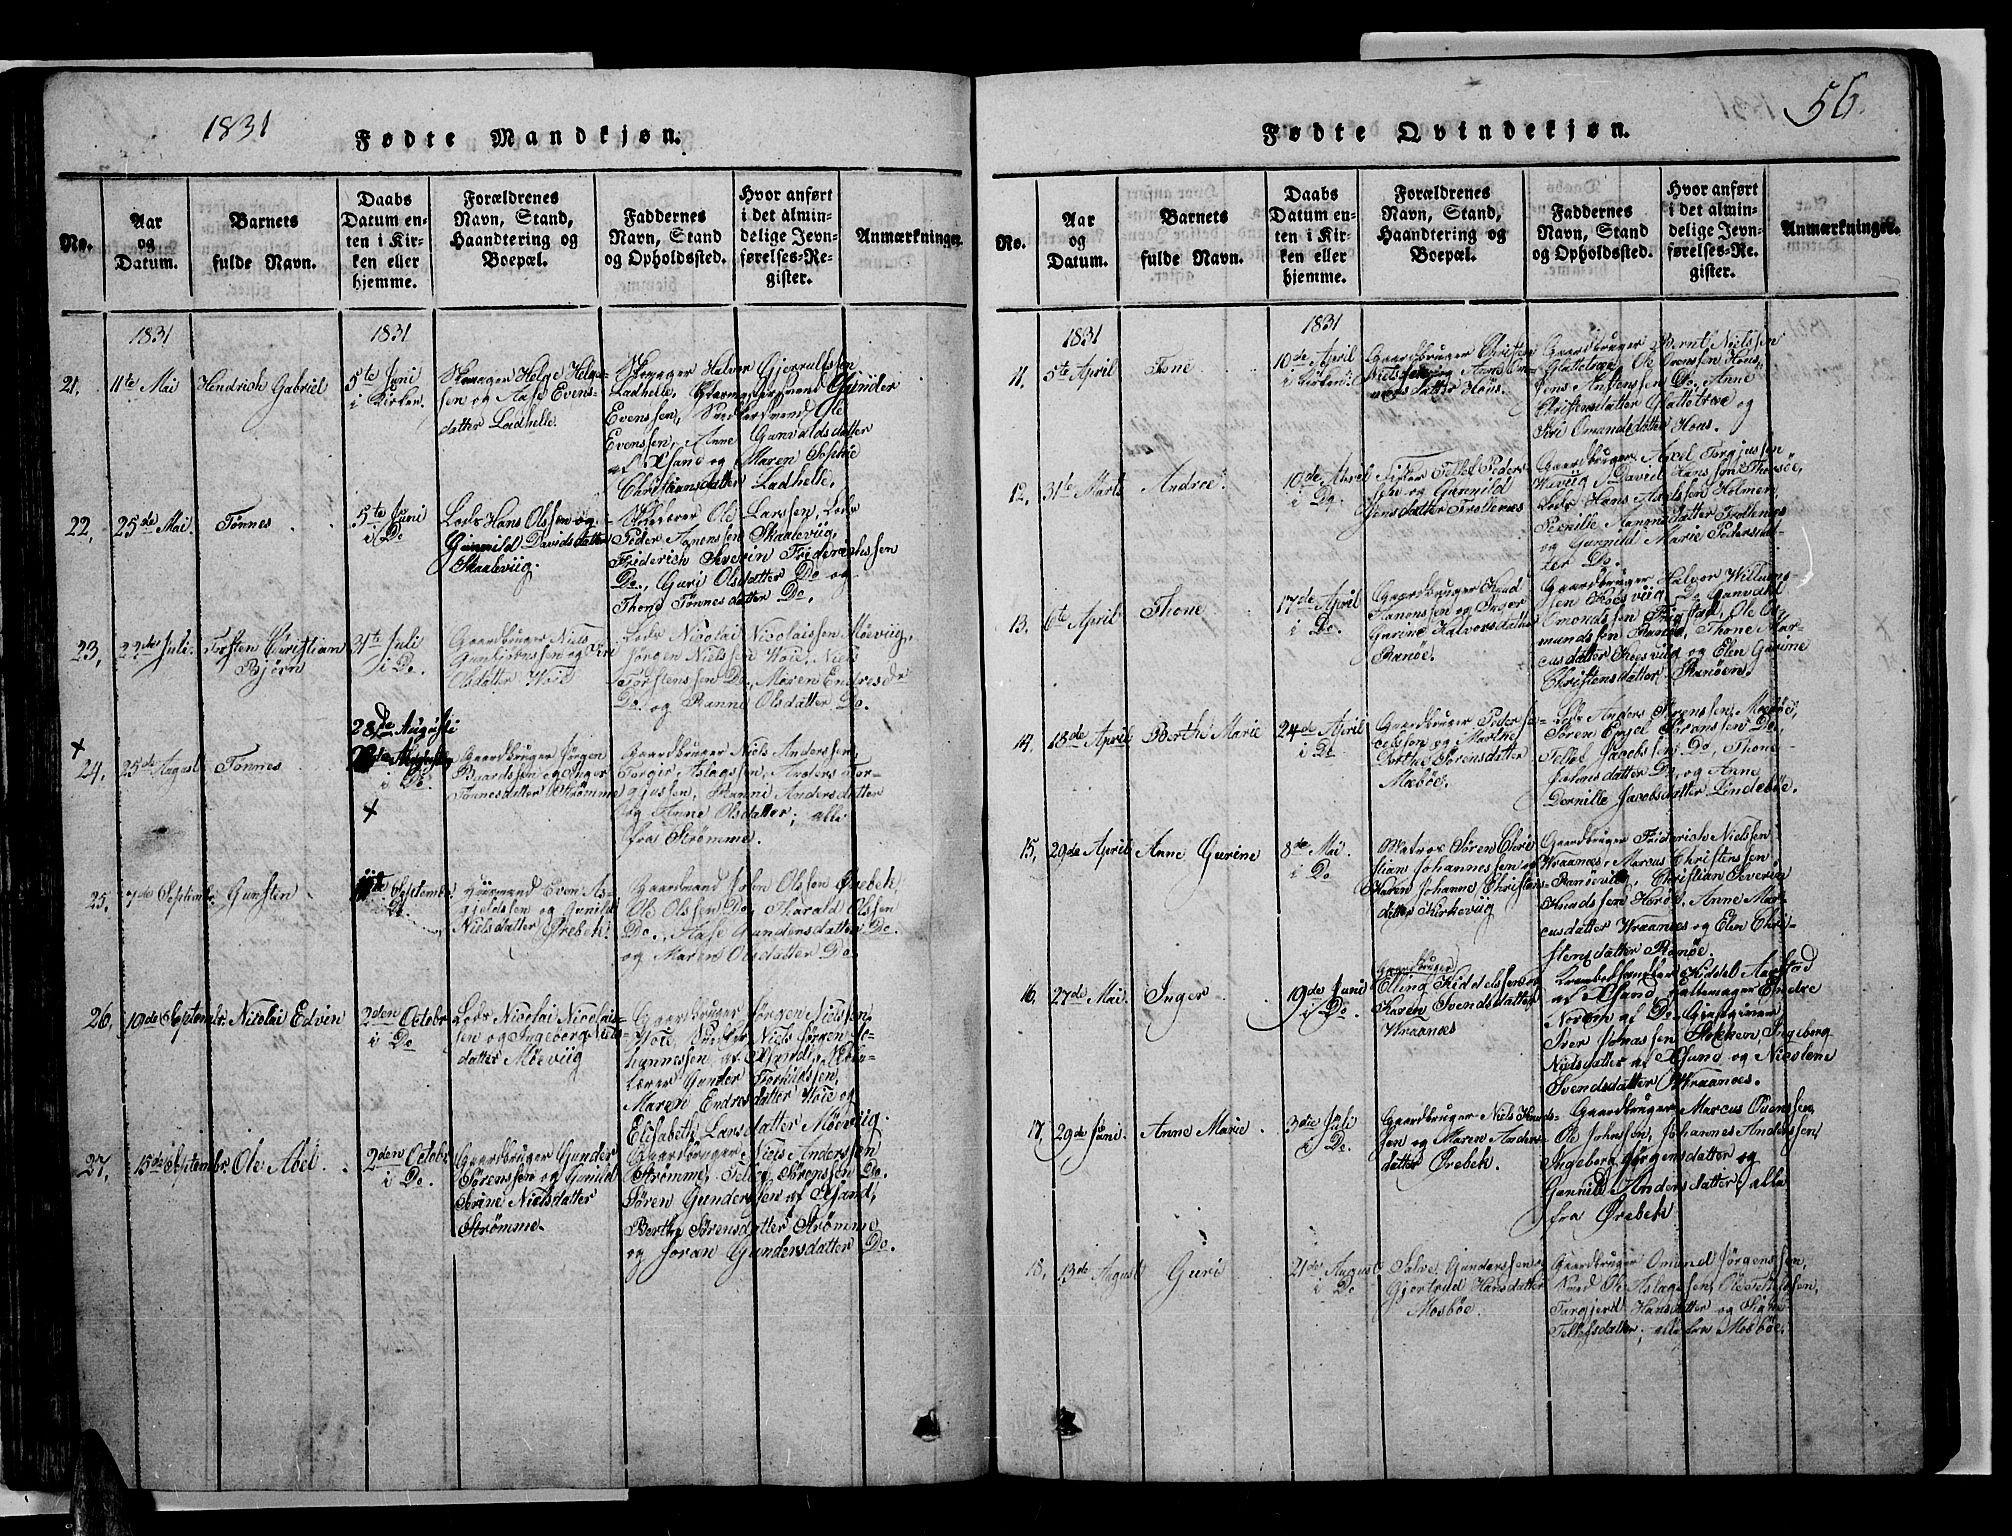 1831
Fødte Mandkjøn.
No.
Aar
og
Datum.
Barnets
fulde Navn.
Daabs
Datum en-
ten i Kir-
ken eller
hjemme.
Forældrenes
Navn, Stand,
Haandtering og
Boepæl.
Faddernes
Navn, Stand
og Opholdssted.
Hvor anført
i det almin-
delige Jevn-
førelses-Re-
gister.
Anmærkninger.
1831
1831
21.
11te Mai
Hendrich Gabriel
5te Juni
i Kirken.
Helge Helge-
sen og Aase Evens-
datter Ladhelle.
Halvor Gjerulfssen
Ladhelle, Gunder
Evenssen, Ole
Evenssen, Anne Gunvaldsdatter
af Xsand og Maren Sophie
Christiansdatter Ladhelle.
22,
25de Mai
Tønnes
5te Juni
i Do
Lods Hans Olssen og
Gunnild Davidsdatter
Skaaleviig.
Ole Larssen, Lods
Peder Aanenssen Skaaleviig,
Friderich Severin Friderichssen
Do, Guri Olsdatter Do og
Thone Tønnesdatter Do.
23,
22de Juli
Torsten Christian
Bjørn
31te Juli
i Do.
Gaardbruger Niels
Gunbjørnssen og Siri
Olsdatter Woie
Lods Nicolai Nicolaissen Møeviig,
Jørgen Nielssen Woie, Niels
Torstenssen Do, Maren Endresdr
Do. og Ranne Olsdatter Do.
×
24,
25de August
Tønnes
28de Augusti
i Do.
×
Gaardbruger Jørgen
Baardssen og Inger
Tønnesdatter Strømme
Gaardbruger Niels Anderssen,
Torgir Aslagssen, Anders Tor-
gjussen, Ranni Andersdatter
og Anne Olsdatter; alle
fra Strømme.
25.
7de Septembr
Gunsten
11te Septembr
Do.
Huusmand Even As-
gjeldssen og Gunild
Nielsdatter Ørebek.
Gaardmand John Olssen Ørebek,
Ole Olssen Do, Tharald Olssen
Do., Aase Gundersdatter Do.
og Maren Olsdatter Do.
26,
19de Septembr.
Nicolai Edvin
2den Octobr
i Do
Lods Nicolai Nicolais-
sen og Ingeborg
datter Møeviig
Gaardbruger Jørgen Nielssen
Woie, Niels Jørgen Jo-
hannessen,
lærer Gunder
Maren Endresdatter Woie og
Elisabeth Larsdatter Møeviig.
27.
15de Septembr.
Ole Abel
2den Octobr
i Do.
Gaardbruger Gunder
Sørenssen og Gunild
Serine Nielsdatter
Strømme.
Gaardbruger Niels Anderssen
Strømme, Tellef Sørenssen Do.
Søren Gunderssen af Xsand,
Berthe Sørensdatter Strømme
og Joran Gundersdatter Do.
56.
Fødte Qvindekjøn.
No.
Aar
og
Datum.
Barnets
fulde Navn.
Daabs
Datum en-
ten i Kir-
ken eller
hjemme.
Forældrenes
Navn, Stand,
Haandtering og
Boepæl.
Faddernes
Navn, Stand
og Opholdssted.
Hvor anført
i det almin-
delige Jevn-
førelses-Re-
gister.
Anmærkninger.
1831
1831
11.
5te April
Tone
10de April
i Kirken
Gaardbruger Christen
Nielssen og Anne Om-
undsdatter Høus.
Gaardbruger Bernt Nielssen
Glattetræ, Ole
Do. Anne
Christensdatter Glattetræ og
Siri Omundsdatter Høus.
12,
31te Marts
Andrea.
10de April
i Do.
Tellef Peders-
sen og Gunnild
Jensdatter Frottenæs
Gaardbruger Axel Torgjussen
Kiviig, David Hanssen Thorsøe,
Lods Hans Axelssen Holmen,
Pernille Aanonsdatter
og Gunnild Marie Pedersdat-
ter Do.
13,
6te April
Thone
17de April
i Do.
Gaardbruger Knud
Aanonssen og Inger
Gurine Halvorsdatter
Ranøe.
Gaardbruger Halvor Willums-
sen Koesviig, Do Gunvald
Omundssen Frigstad, Ole Os-
mundssen Ranøe, Thone Mar-
cusdatter Koesviig og Elen Gurine
Christensdatter Ranøen.
14,
18de April
Berthe Marie
24de April
i Do
Gaardbruger Peder
og Marthe
Dorthe Sørensdatter
Mæbøe.
Lods Anders Sørenssen Mæbøe,
Søren Engel Sørenssen Do,
Tellef Jacobssen Do, Thone
Johnsdatter Do, og Anne
Pernille Jacobsdatter Lindebøe.
15,
29de April
Anne Gurine
8de Mai.
i Do.
Matros Søren Chri-
stian Johannessen og
Karen Johanne Christens-
datter Kirkeviig
Gaardbruger Friderich Nielssen
Wraanæs, Marcus Christenssen
Ranøeviig, Christian Severin
Knudssen Herøe, Anne Mar-
cusdatter Wraanæs og Elen Chri-
stensdatter Ranøe.
16.
27de Mai.
Inger
19de Juni
i Do.
Gaardbruger
Elling Kiddelssen og
Karen Svendsdatter
Wraanæs
Kiddel Aagstad
af Xsand, Endre
Noreen af Do, Giestgiver
Iver Jonassen Stokken, Ingeborg
Nielsdatter af Xsand og Nicoline
Svendsdatter Wraanæs.
17,
29de Juni.
Anne Marie
3die Juli
i Do.
Gaardbruger Niels Knuds-
sen og Maren Anders-
datter Ørebek.
Gaardbruger Marcus Ouenssen,
Ole Johnssen, Johannes Anderssen,
Ingeborg Jørgensdatter og
Gunnild Andersdatter; alle
fra Ørebek
18,
13de August
Guri
21de August
i Do
Salve Gunderssen og
Gjertrud Hansdatter
Mosbøe.
Gaardbruger Omund Jørgenssen,
Smed Ole Aslagssen, Ole
Torgjerd Hansdatter og Sigri
Tellefsdatter; alle fra Mosbøe.